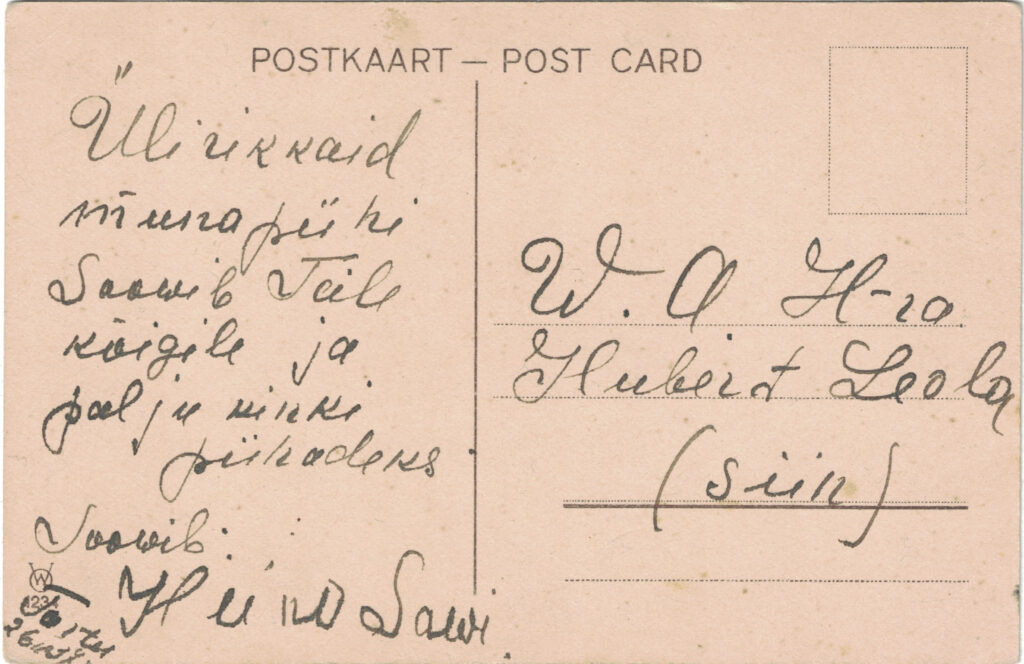 POSTKAART — POST CARD
Üli rikkaid
muna pühi
Soowib Teile
kõigile ja
palju kinki
pühadeks
Soowib:
Heino Sawi
W
123
Tartu
W. A H-ra
Hubert Leola
(siin)